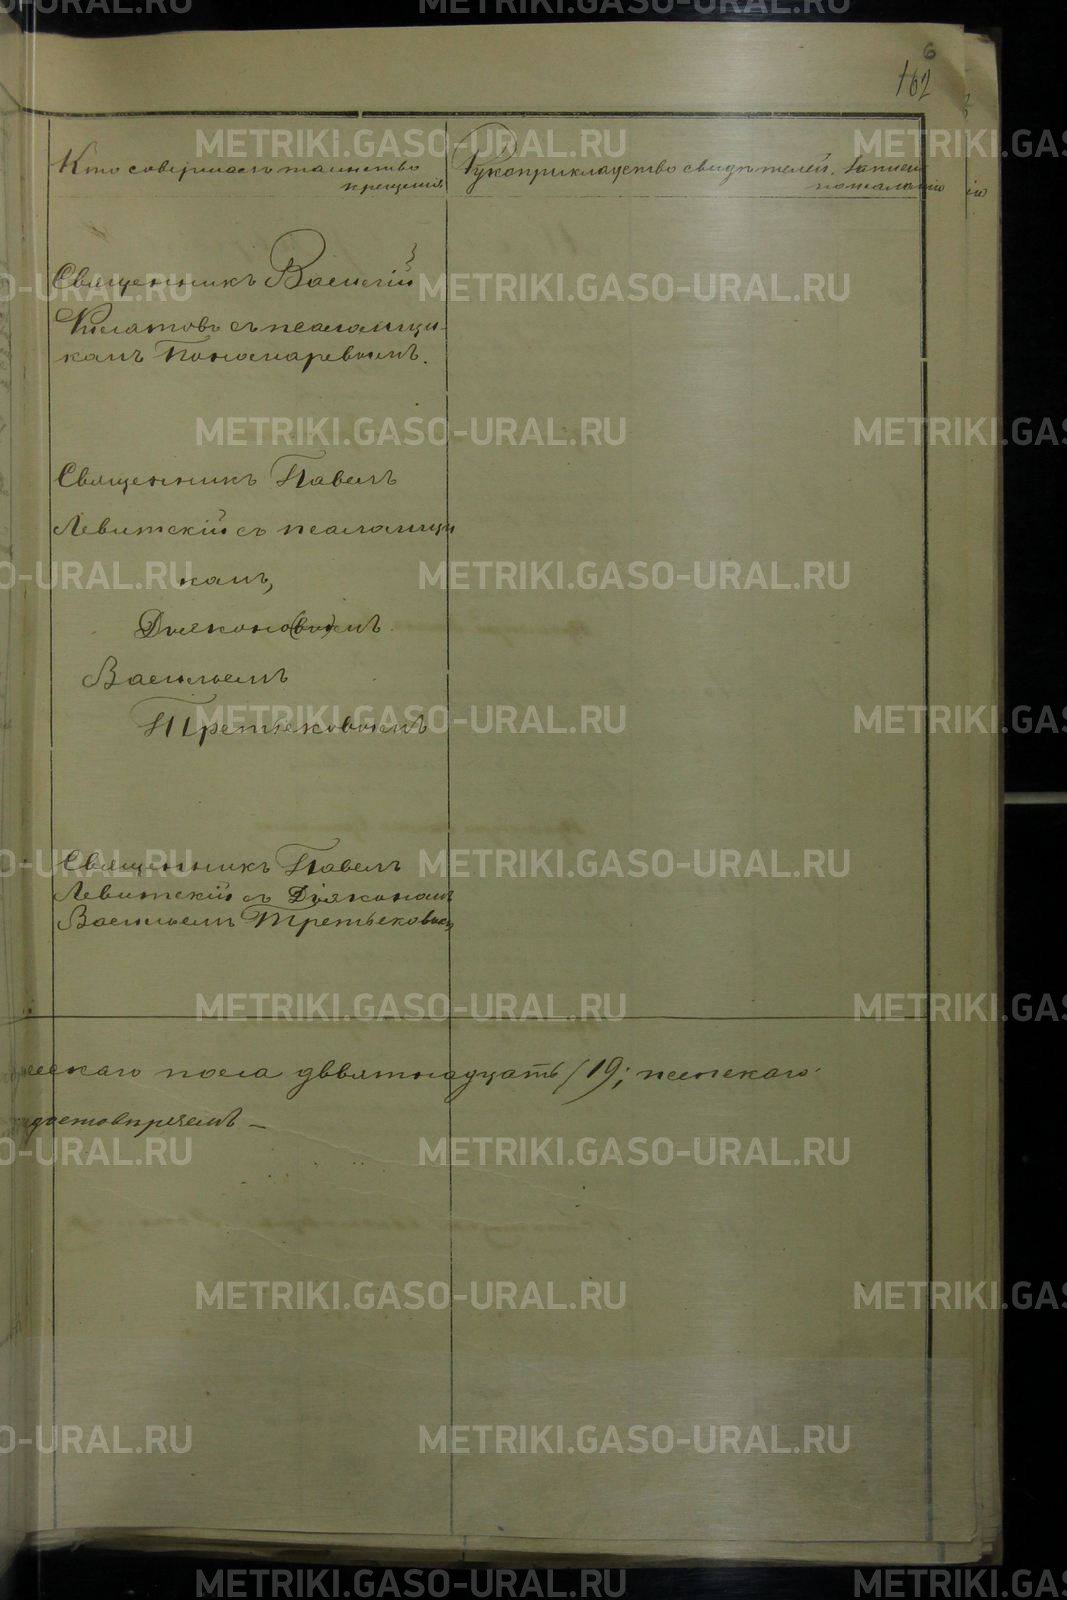 6
162
Кто совершалъ таинство
крещенія
Рукоприкладство свидѣтелей записи
по желанію
Священникъ Василій
с псаломщи-
комъ Пономаревымъ.
Священникъ Павелъ
Левитскій съ псаломщи
комъ,
Дьяконо(вы)мъ
Васильемъ
Третьяковымъ
Священникъ Павелъ
Левитскій съ Діякономъ
Васильемъ Третьяковымъ
пола двѣятнадцать (19; женскаго
METRIKI.GASO-URAL.RU